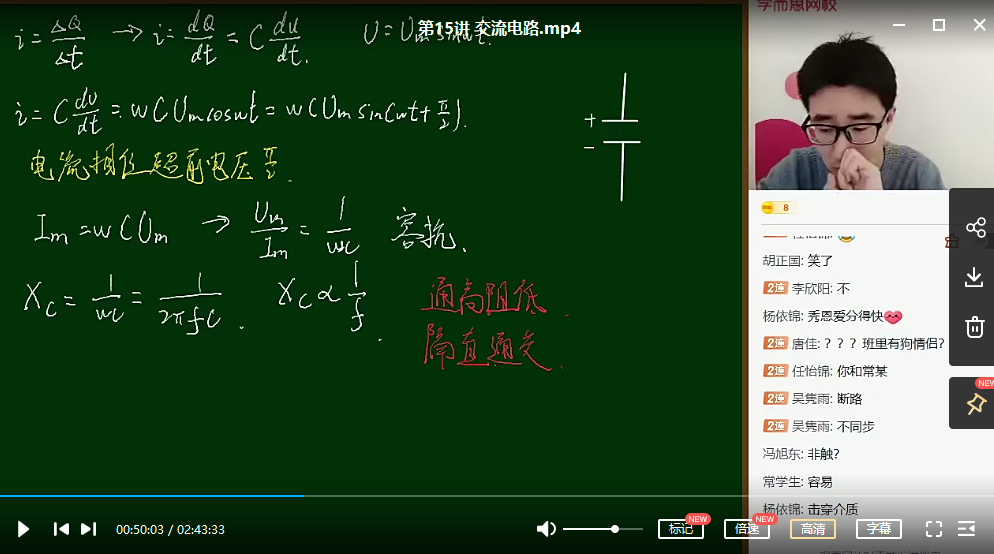 学而思网校
第15讲 交流电路.mp4
i = ΔQ/Δt → i = dQ/dt = C du/dt.
i = C du/dt = wCUmcoswt = wCUmsin(wt+π/2).
电流相位超前电压π/2.
Im = wCUm → Um/Im = 1/wC 容抗.
Xc = 1/wC = 1/2πfC. Xc ∝ 1/f.
通高阻低.
隔直通交.
+
-
8
胡正国: 笑了
2连 李欣阳: 不
杨依锦: 秀恩爱分得快
2连 唐佳: ？？？班里有狗情侣?
2连 任怡锦: 你和常某
2连 吴隽雨: 断路
2连 吴隽雨: 不同步
冯旭东: 非触?
常学生: 容易
杨依锦: 击穿介质
NEW
00:50:03 / 02:43:33
标记 NEW
倍速 NEW
高清
字幕